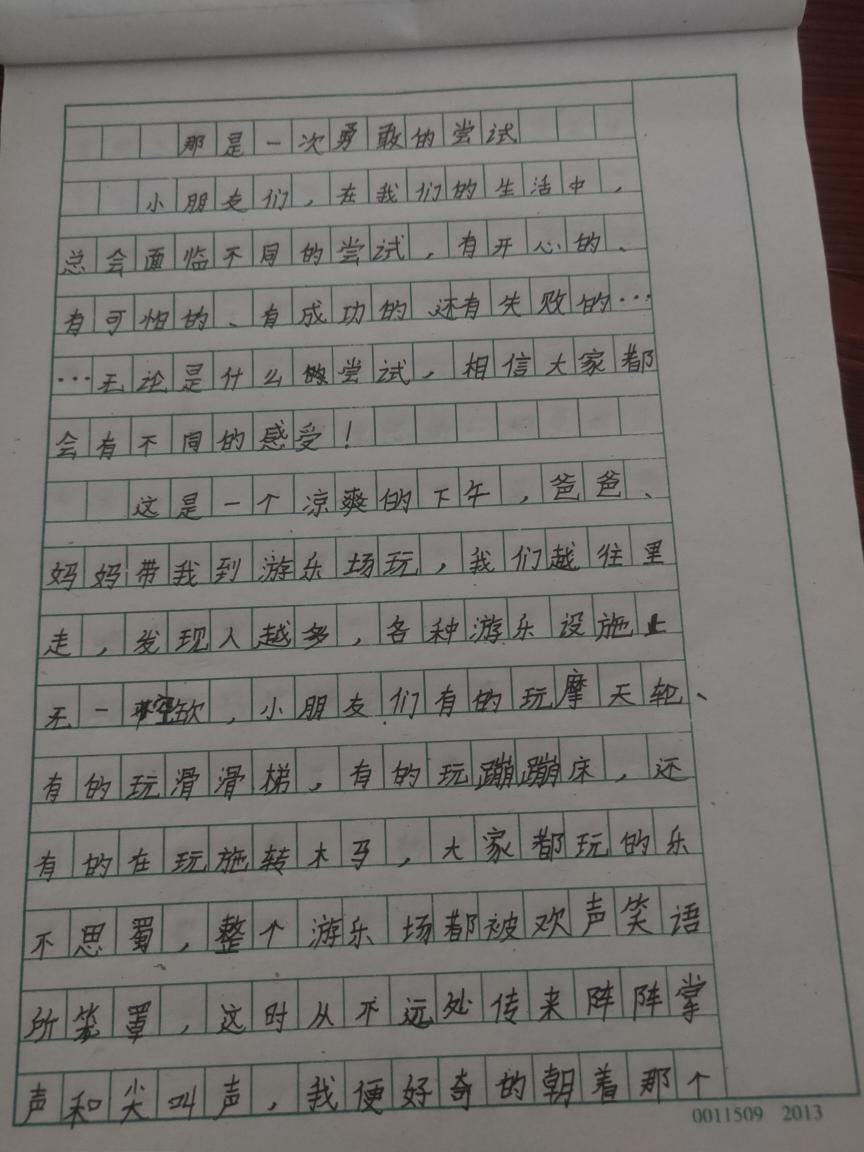 那是一次勇敢的尝试
小朋友们，在我们的生活中，
总会面临不同的尝试，有开心的、
有可怕的、有成功的、还有失败的…
…无论是什么的尝试，相信大家都
会有不同的感受！
这是一个凉爽的下午，爸爸、
妈妈带我到游乐场玩，我们越往里
走，发现人越多，各种游乐设施上
无一空欤，小朋友们有的玩摩天轮、
有的玩滑滑梯，有的玩蹦蹦床，还
有的在玩施转木马，大家都玩的乐
不思蜀，整个游乐场都被欢声笑语
所笼罩，这时从不远处传来阵阵掌
声和尖叫声，我便好奇的朝着那个
0011509 2013